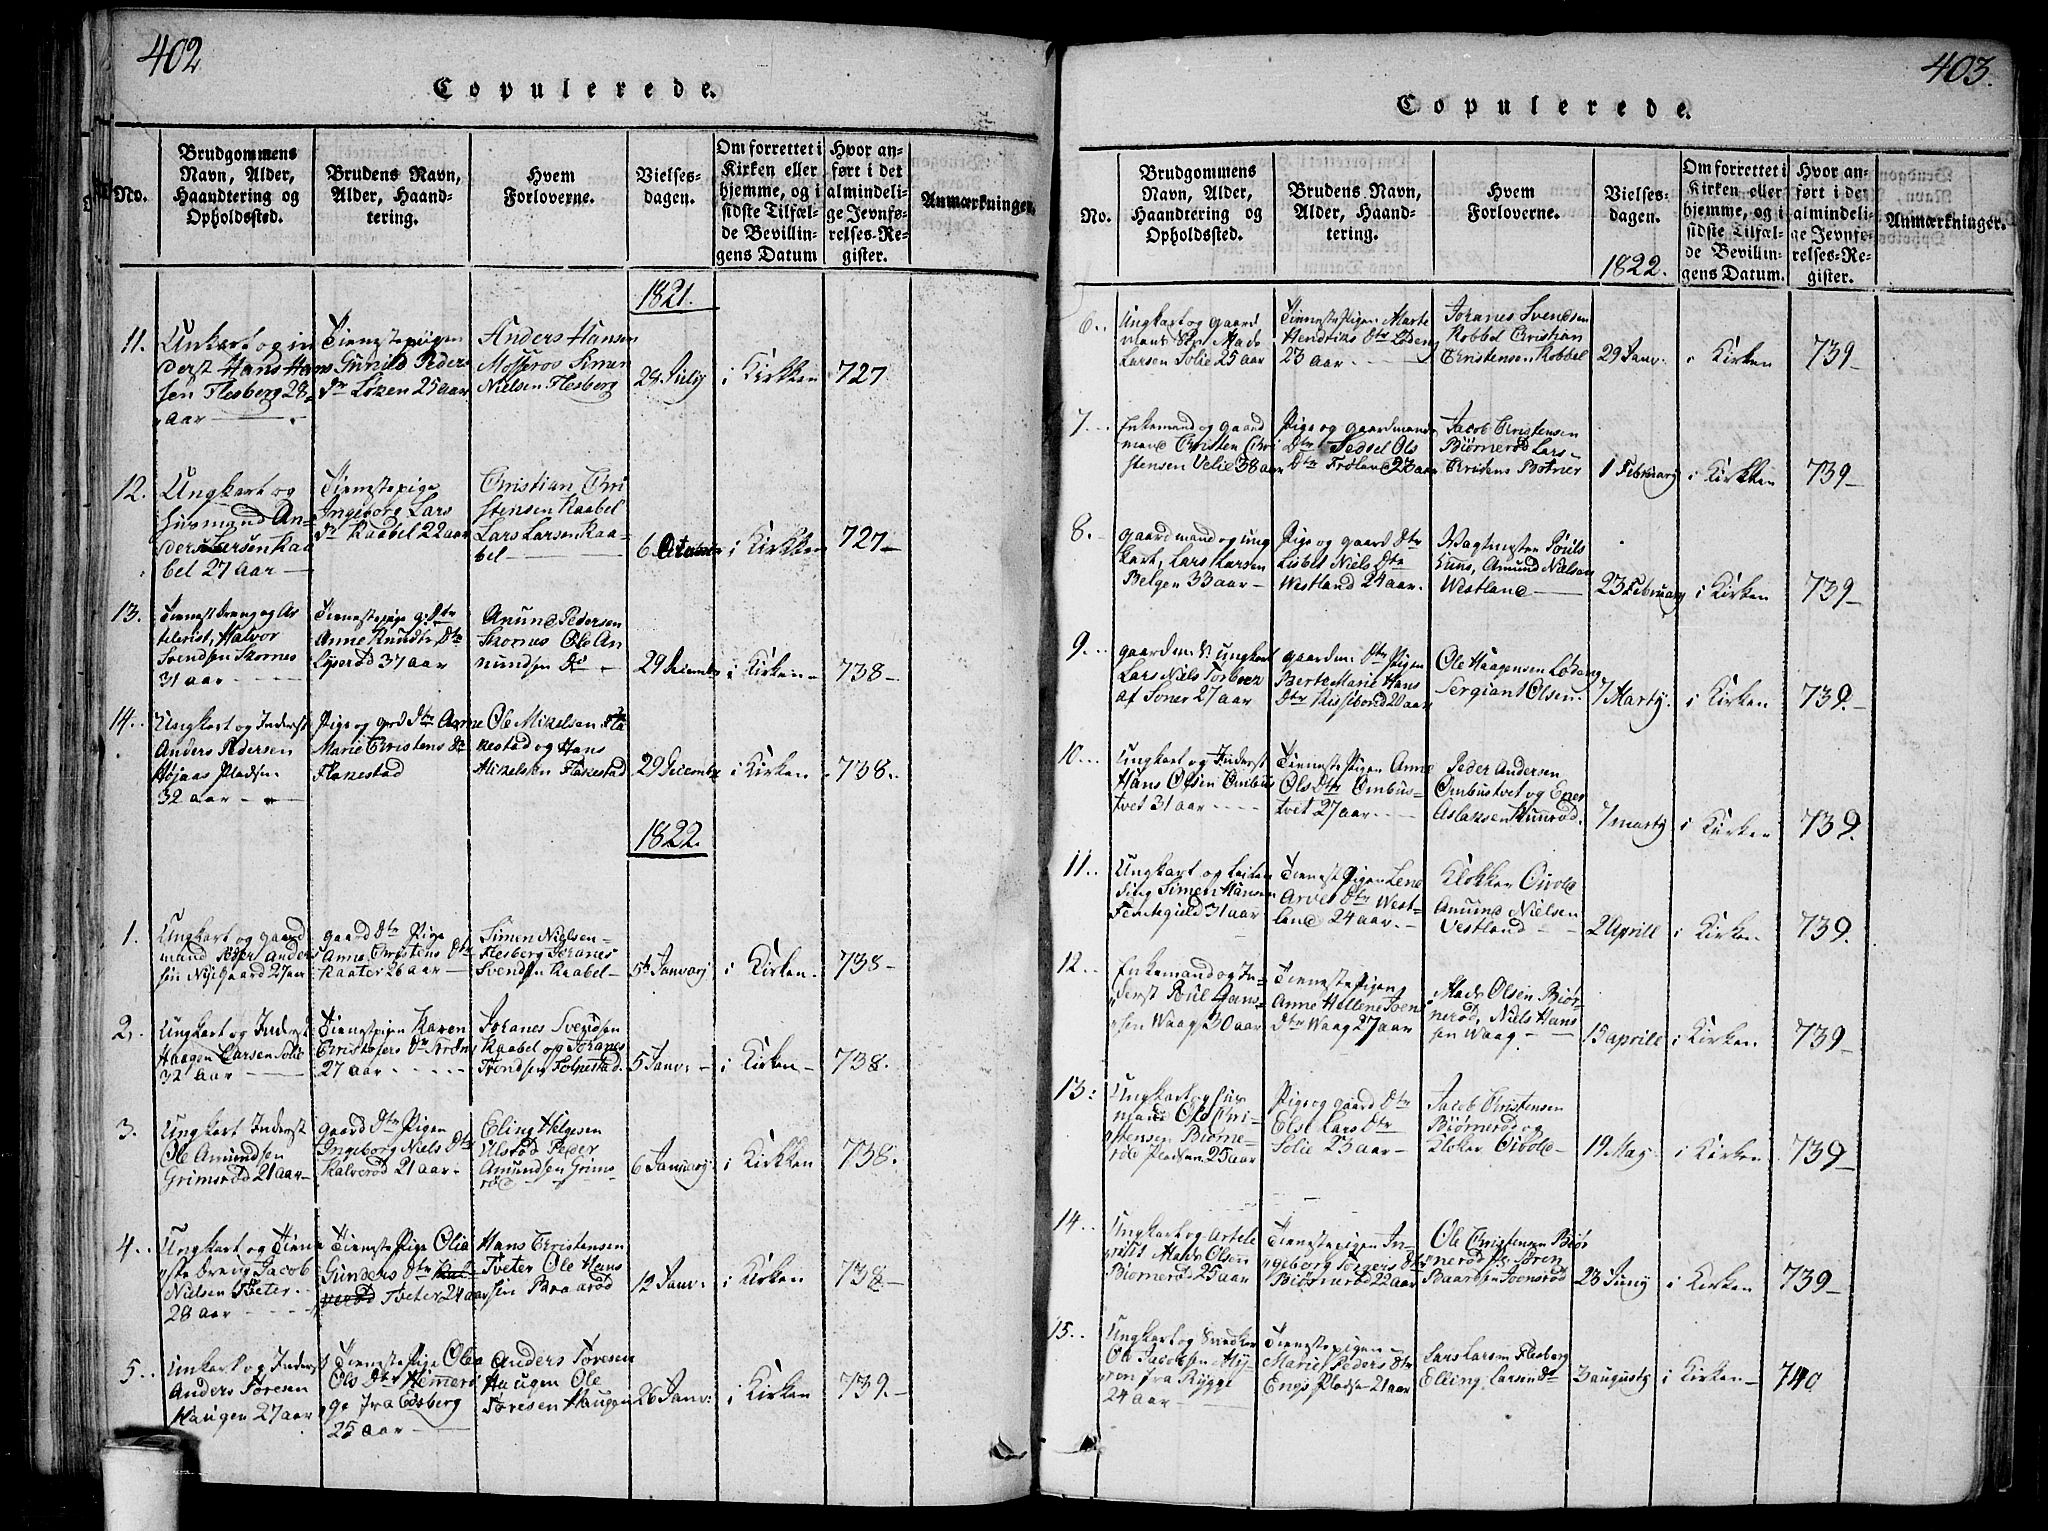 402
Copulerede.
No.
Brudgommens
Navn, Alder,
Haandtering og
Opholdssted.
Brudens Navn,
Alder, Haand-
tering.
Hvem
Forloverne.
Vielses-
dagen.
Om forrettet i
Kirken eller
hjemme, og i
sidste Tilfæl-
de Bevillin-
gens Datum
Hvor an-
ført i det
almindeli-
ge Jevnfø-
relses-Re-
gister.
Anmærkninger.
1821.
11.
Unkart og in
derst Hans Han
sen Flesberg 28
aar
Tienestepigen
Gunild Peders
Dr Løken 25 aar
Anders Hansen
Mosseros Simen
Nielsen Flesberg
28 July
i Kirkken
727
12.
Ungkart og
Huusmand An-
ders Larsen Raa
bel 27 aar
Tienestepige
Ingeborg Lars
Dr Raabel 22 aar
Christian Chri
stensen Raabel
Lars Larsen Raa-
bel
6
i Kirkken
727-
13.
Tienestdreng og Ar
tilerist, Halvor
Svendsen Skornes
31 aar
Tienestepige g: Dtr
Anne Knudts Dtr
Lyserød 37 aar
Anund Pedersen
Skornes Ole An
nundsen Do
29 Decembr
i Kirken-
738-
14.
Ungkart og Inderst
Anders Pedersen
Højaas Pladsen
32 aar
Pige og grd Dtr Anne
Marie Christens Dr
Flakestad
Ole Mikelsen Fla
kestad og Hans
Mikelsen Flakestad
29 Decembr
i Kirken
738.
1822.
1.
Ungkart og gaard
mand Peder Anders
sen Nygaard 27 aar
gaard Dtr Pige
Anne Christens Dtr
Raater 26 aar
Simen Nielsen
Flesberg Johanes
Svendsen Raabel
5t Janvarj
i Kirken-
738-
2.
Ungkart og Inderst
Haagen Larsen Solie
32 aar
Tienestpigen Karen
Christofers Dr
27 aar
Johanes Svendsen
Raabel og Johanes
Trondsen Folkestad.
5 Janv:
i Kirken-
738.
3.
Ungkart Inderst
Ole Amundsen
Grimsrød 21 aar
gaard Dtr Pigen
Ingeborg Niels Dtr
Kalverød 21 aar
Eling Helgesen
Ulsrød Peder
Amundsen Grims
rød
6 Janvarj
i Kirkken
738.
4.
Ungkart og Tiene
ste dreng Jacob
Nielsen Tveter
28 aar
Tieneste Pige Olia
Gunders Dtr Kal-
verød Tveter 24 aar
Hans Christensen
Tveter Ole Hans
sen Braarød
12 Janv:
i Kirken
738-
5.
Unkart og Inderst
Anders Toresen
Haugen 27 aar
Tieneste Pige Olea
Ols Dtr Hemerø
ge fra Edsberg
25 aar
Anders Toresen
Haugen Ole
Toresen Haugen
26 Janv:
i Kirken
739.-
403.
Copulerede.
No.
Brudgommens
Navn, Alder,
Haandtering og
Opholdssted.
Brudens Navn,
Alder, Haand-
tering.
Hvem
Forloverne.
Vielses-
dagen.
Om forrettet i
Kirken eller
hjemme, og i
sidste Tilfæl-
de Bevillin-
gens Datum.
Hvor an-
ført i det
almindeli-
ge Jevnfø-
relses-Re-
gister.
Anmærkninger.
1822.
6.
Ungkart og gaard
mand Mads
Larsen Solie 25 aar
Tieneste Pigen Marte
Hendriks Dtr Lødeng
23 aar
Johanes Svendsen
Robbel Christian
Christensen Robbel
29 Janv:
i Kirken
739-
7.
Enkemand og gaard
mand Christen Chri
stensen Velie 38 aar
Pige og gaardmands
Dtr Sedsel Ols
Dtr Frøland 23 aar
Jacob Christensen
Biørnerød Lars
Christens Botner
1 February
i Kirkken
739-
8.
gaardmand og ung
kart, Lars Larsen
Belgen 33 aar
Pige og gaard Dtr
Lisbet Niels Dtr
Westland 24 aar.
Wagtmester Pouls
Amund Nielsen
Westland
23 February
i Kirken
739-
9.
gaardm. og ungkarl
Lars Niels Torbern
af Soner 27 aar
gaardm: Dtr Pigen
Berte Marie Hans
Dtr Rissebond 20 aar
Ole Haagensen Lødeng
Sergiant Olsen
7 Marty.
i Kirken
739.-
10.
Ungkart og Inderst
Hans Olsen Ombus
tvet 31 aar
Tieneste Pigen Anne
Ols Dtr Ombus-
tvet 27 aar
Peder Andersen
Ombustvet og Ener
Aslaksen
7 marty
i Kirken
739.
11.
Ungkart og Leilen
ding Simen Hansen
31 aar
Tieneste Pigen Lene
Arves Dtr West-
land 24 aar.
Klokker Eivold
Anund Nielsen
Vestland
2 Aprill
i Kirken
739.
12.
Enkemand og In-
derst Poul Jans-
sen Waag 30 aar
Tieneste Pigen
Anne Hellene Sven
Dtr Waag 27 aar
Mads Olsen Biør-
nerød, Niels Hans
sen Waag
15 aprill
i Kirken
739-
13.
Ungkart og Huus
mand Ole Chri-
stensen Biørne-
rød Pladsen 25 aar
Pige og gaard Dtr
Else Lars Dtr
Solie 23 aar
Jacob Christensen
Biørnerød og
Kloker Eivold
19 May
i Kirken
739-
14.
Ungkart og Artele
rist Mads Olsen
Biørnerød 25 aar
Tieneste Pigen In-
geborg Torgers Dtr
Biørnerød 22 aar
Ole Christensen Biør
nerød Pr. Søren
Baardsen Joonsrød
23 Juny
i Kirken
739-
15.
Ungkart og Snedker
Ole Jacobsen My-
ren fra Rygge
24 aar
Tienestepigen
Marie Peders Dtr
Engs Pladsen 21 aar
Lars Larsen Flesberg
Elling Larsen Do
3 augusty
i Kirken-
740